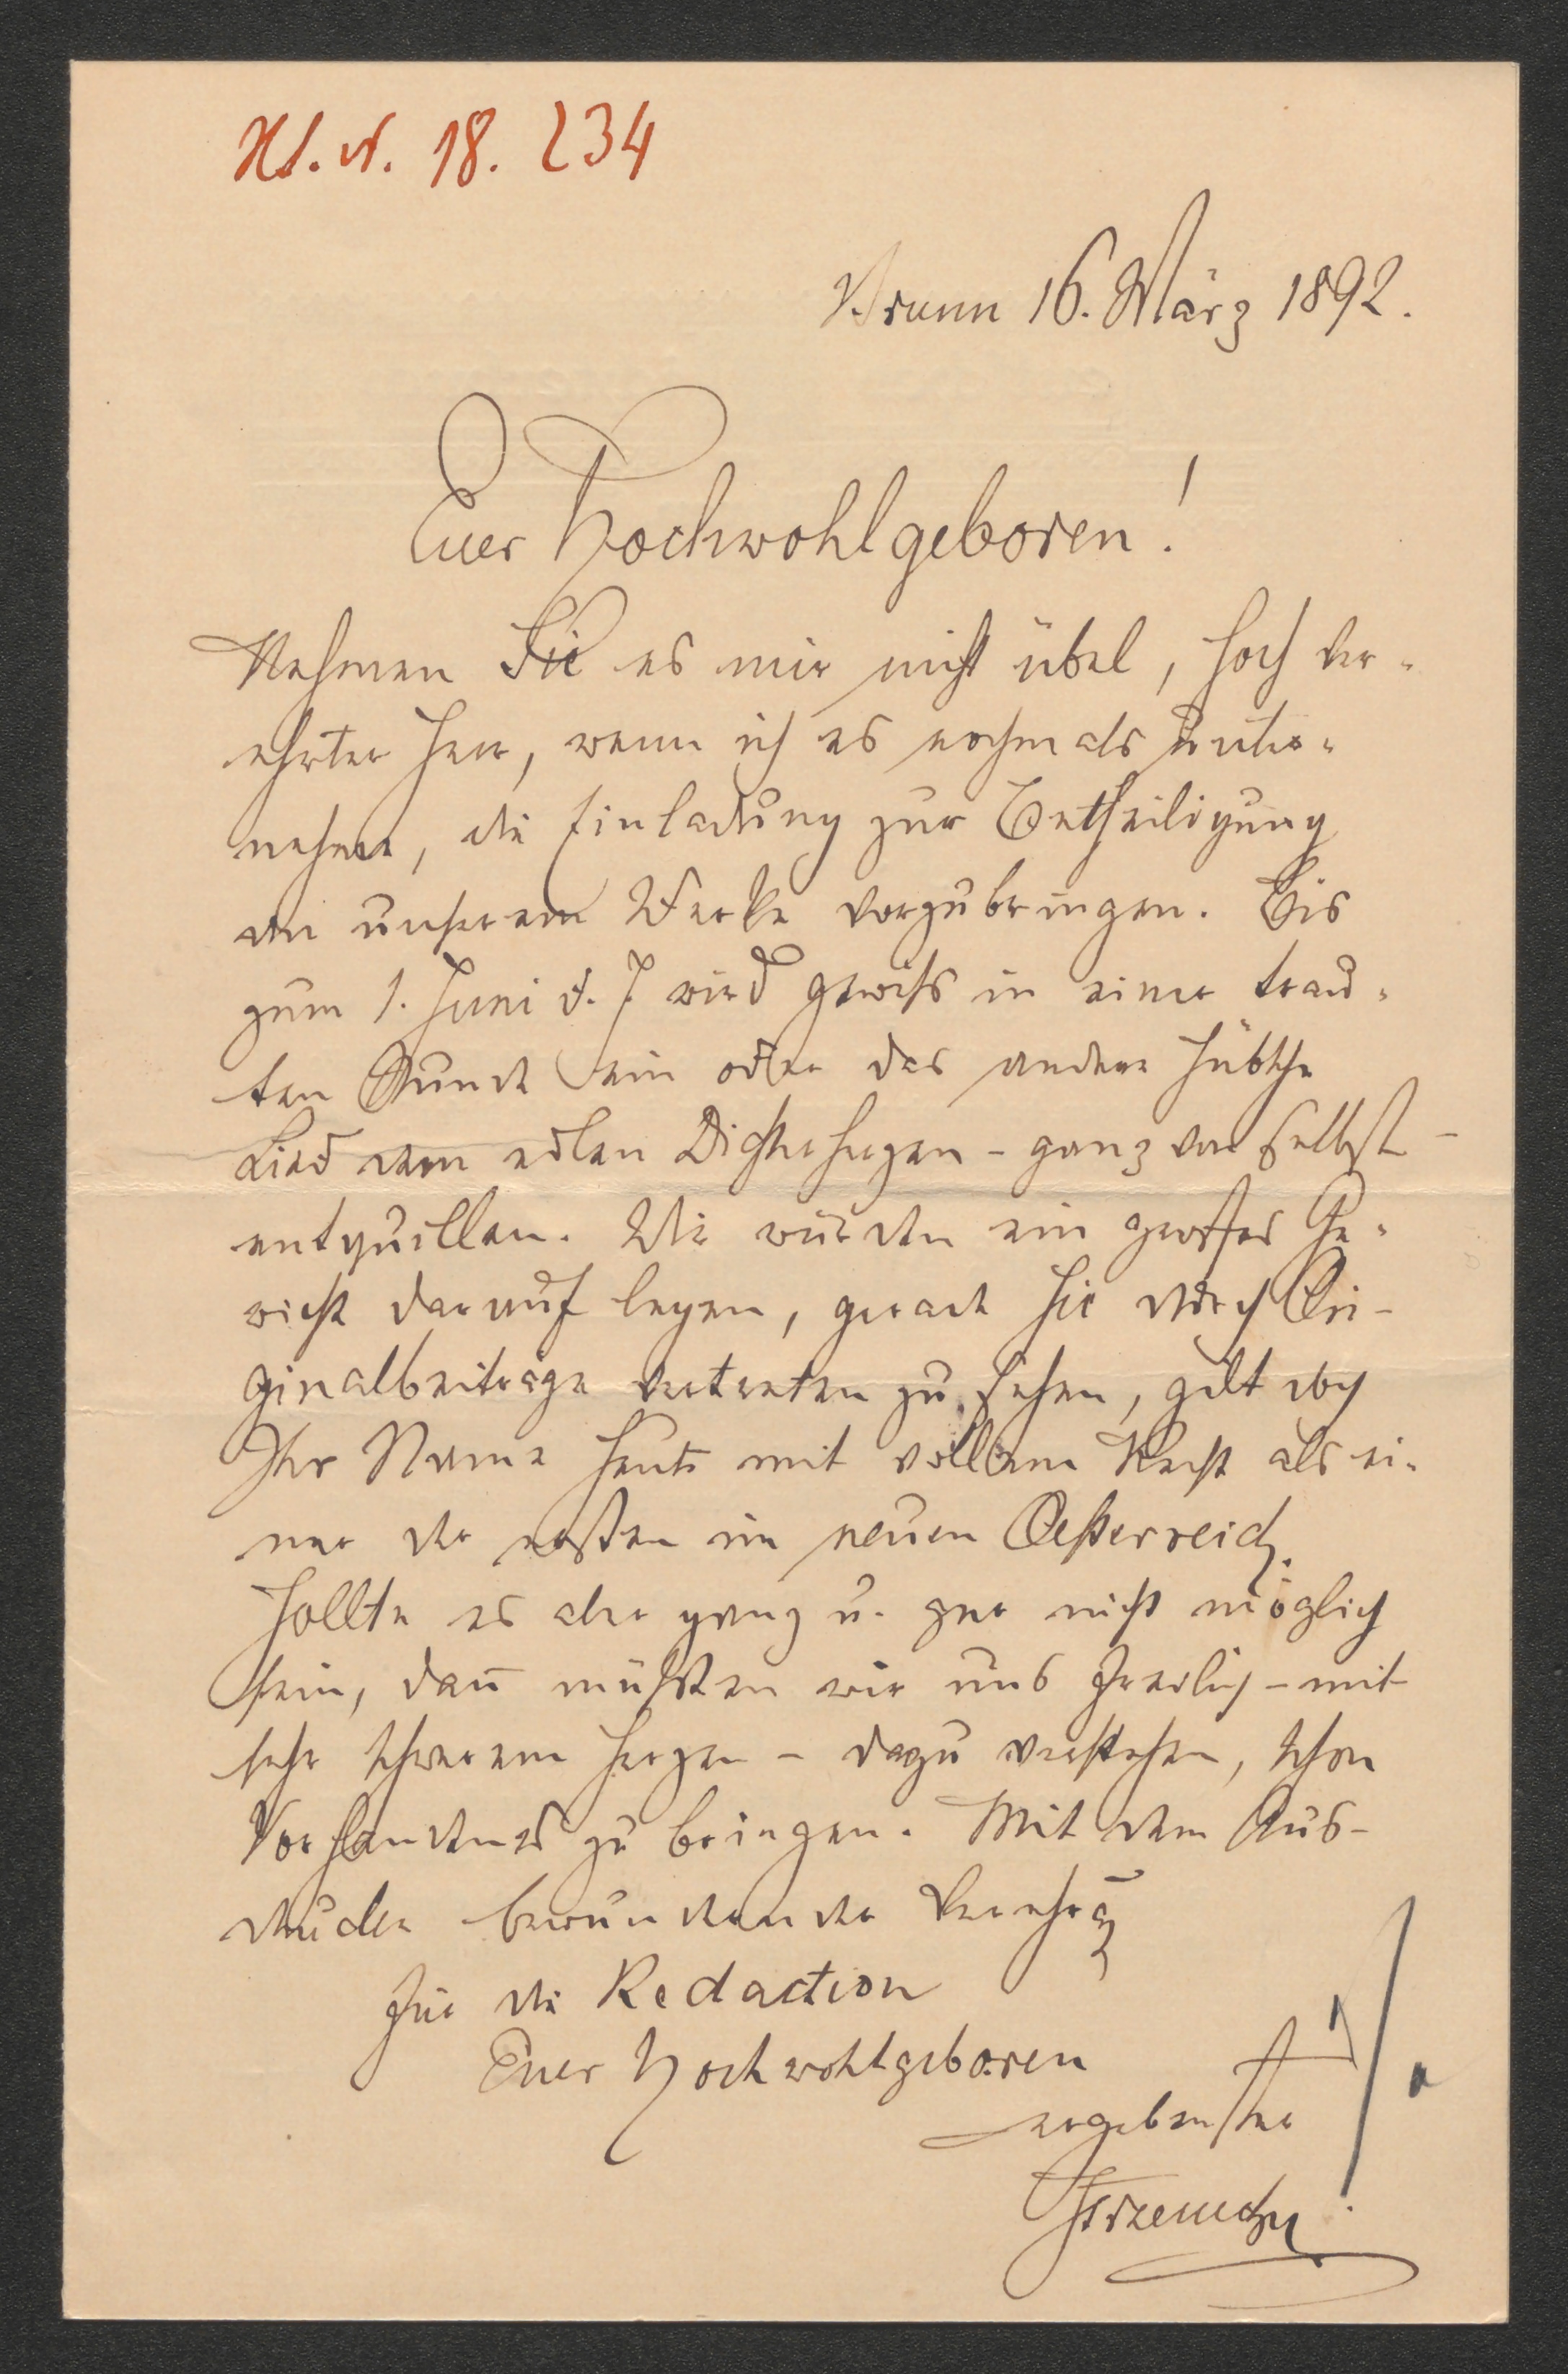 Hd. N. 18. 234
Brunn 16. März 1892.
Euer Hochwohlgeboren!
Nehmen Sie es mir nicht übel, hoch ver-
ehrter Herr, wenn ich es nochmals unter-
nehme, die Einladung zur Betheiligung
an unserem Werke vorzubringen. Bis
zum 1. Juni d. J. wird gewiß in einer trau-
ten Stunde ein oder das andere hübsche
Lied dem edlen Dichterherzen – ganz von selbst –
entquillen. Wir würden ein großes Ge-
wicht darauf legen, gerade Sie durch Ori-
ginalbeiträge vertreten zu sehen, gilt doch
Ihr Name heute mit vollem Recht als ei-
ner der ersten im neuen Oesterreich.
Sollte es aber ganz u. gar nicht möglich
sein, dañ müßten wir uns freilich – mit
sehr schwerem Herzen – dazu verstehen, schon
Vorhandenes zu bringen. Mit dem Aus-
drucke bewundernder Verehrg
für die Redaction
Euer Hochwohlgeboren
ergebenster